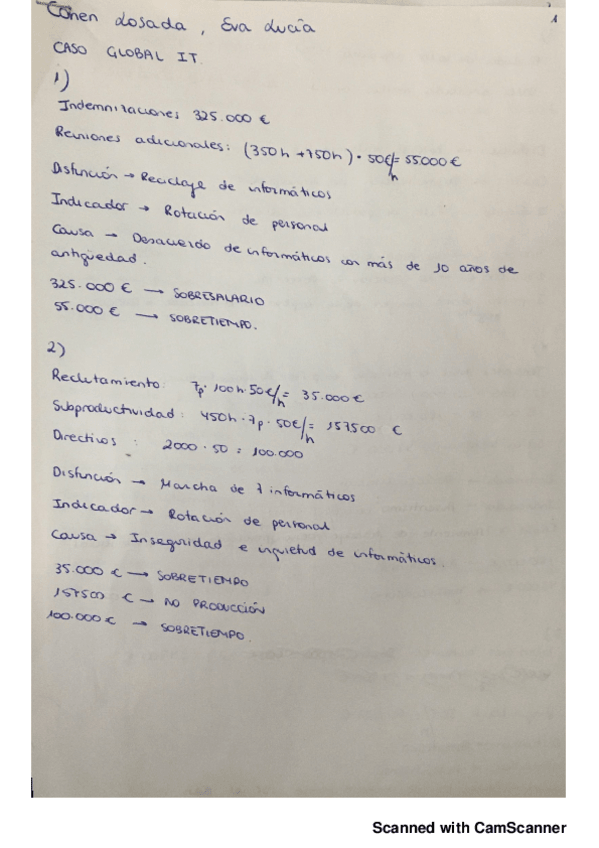 Conen Losada, Eva Lucía
1
CASO GLOBAL IT.
1)
Indemnizaciones 325.000 €
Reuniones adicionales: (350h + 750h) · 50€/h = 55000 €
Disfunción → Reciclaje de informáticos
Indicador → Rotación de personal
Causa → Desacuerdo de informáticos con más de 10 años de
antigüedad.
325.000 € → SOBRESALARIO
55.000 € → SOBRETIEMPO.
2)
Reclutamiento: 7p · 100h · 50€/h = 35.000€
Subproductividad: 450h · 7p · 50€/h = 157500 €
Directivos : 2000 · 50 = 100.000
Disfunción → Marcha de 7 informáticos
Indicador → Rotación de personal
Causa → Inseguridad e inquietud de informáticos.
35.000 € → SOBRETIEMPO
157500 € → NO PRODUCCIÓN
100.000 € → SOBRETIEMPO.
Scanned with CamScanner